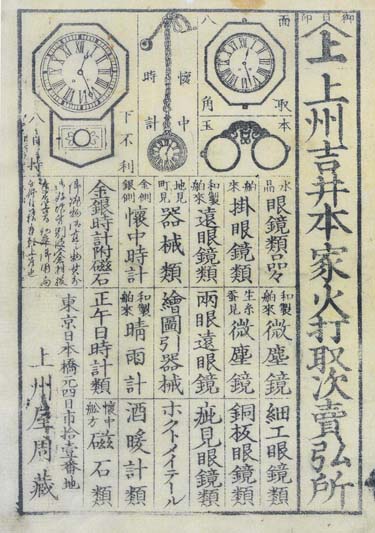 御目印
上
上州吉井本家火打取次賣弘所
面取
八角
本玉
懐中
時計
下不利
八日持
水晶 眼鏡類品々
舶來 掛眼鏡類
和製 舶來 遠眼鏡類
地見 町見 器械類
金側 銀側 懐中時計
金銀時計附磁石
和製 舶來 微塵鏡
生糸 蚕見 微塵鏡
兩眼遠眼鏡
繪圖引器械
和製 舶來 晴雨計
正午日時計類
細工眼鏡類
銅板眼鏡類
疵見眼鏡類
ホクトメイテール
酒暖計類
懐中 舩方 磁石類
東京日本橋元四日市拾壹番地
上州屋周藏